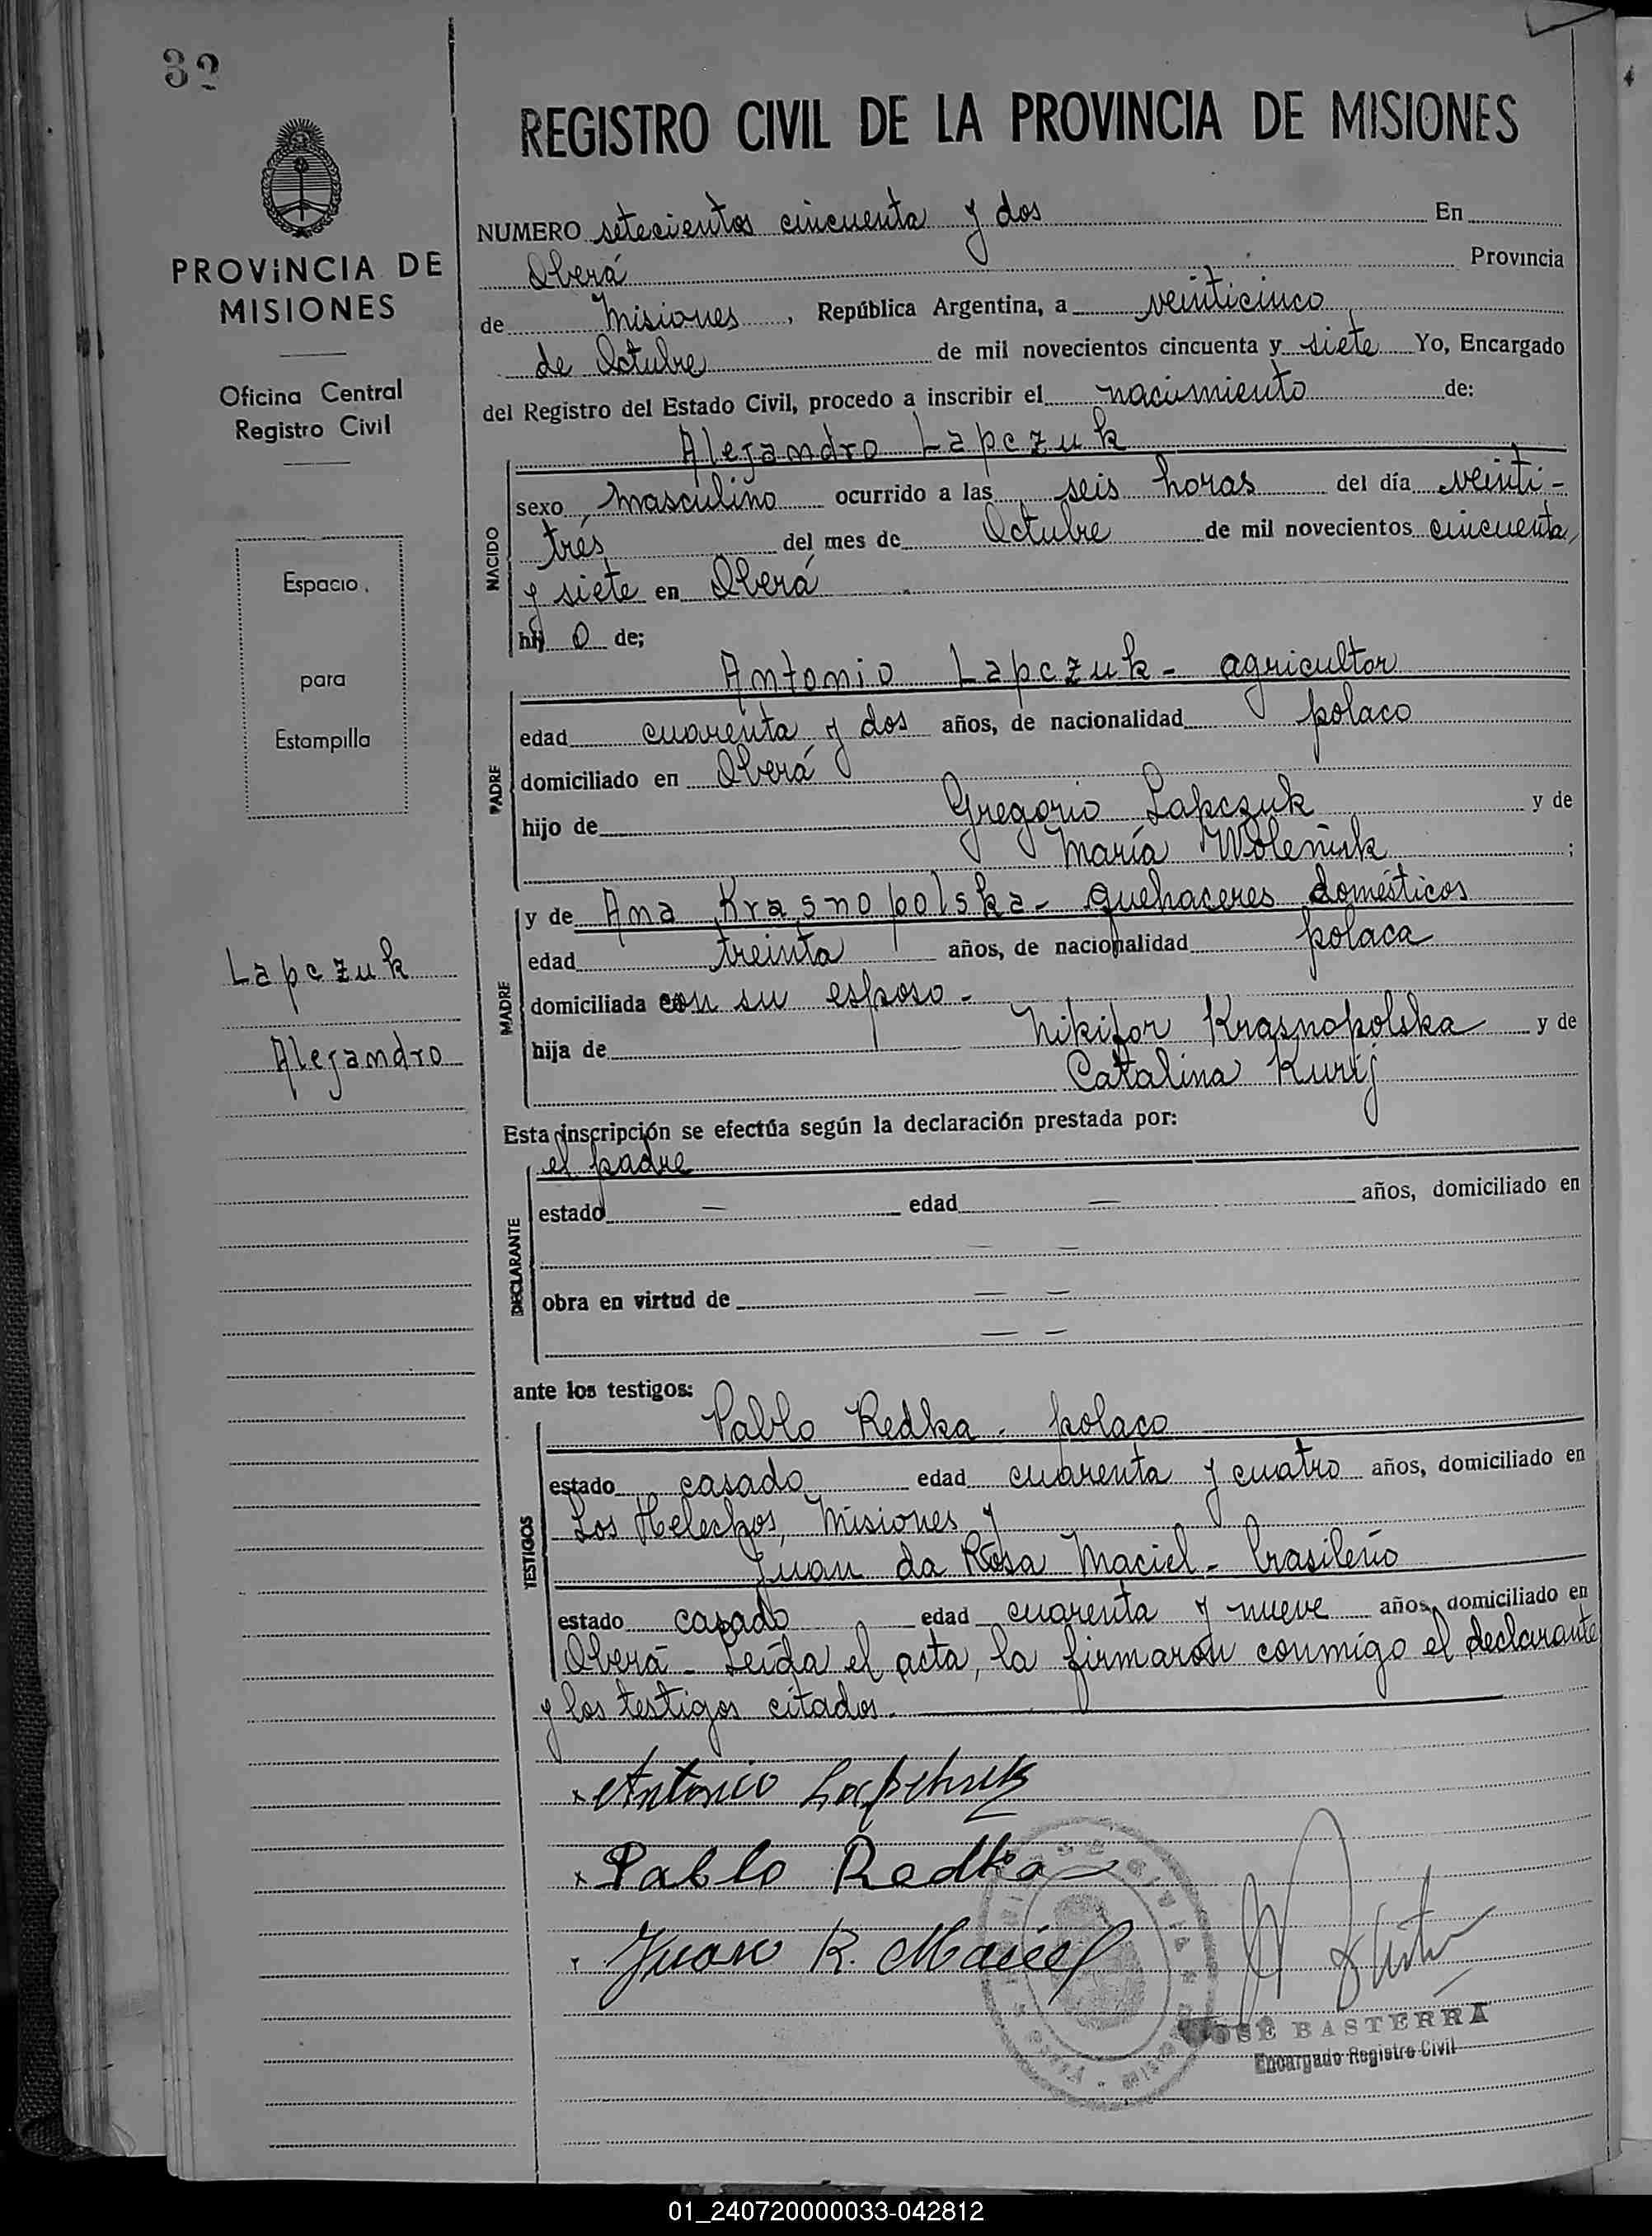 32
REGISTRO CIVIL DE LA PROVINCIA DE MISIONES
PROVINCIA DE
MISIONES
Oficina Central
Registro Civil
Espacio
para
Estampilla
Lapczuk
Alejandro
NUMERO setecientos cincuenta y dos En
Oberá Provincia
de Misiones, República Argentina, a veinticinco
de Octubre de mil novecientos cincuenta y siete Yo, Encargado
del Registro del Estado Civil, procedo a inscribir el nacimiento de:
Alejandro Lapczuk
NACIDO
sexo masculino ocurrido a las seis horas del día veinti-
tres del mes de Octubre de mil novecientos cincuenta
y siete en Oberá
hij o de;
Antonio Lapczuk - agricultor
PADRE
edad cuarenta y dos años, de nacionalidad polaco
domiciliado en Oberá
hijo de Gregorio Lapczuk y de
María Woleniuk ;
y de Ana Krasnopolska - quehaceres domésticos
MADRE
edad treinta años, de nacionalidad polaca
domiciliada con su esposo -
hija de Nikifor Krasnopolska y de
Catalina Kurij
Esta inscripción se efectúa según la declaración prestada por:
el padre
DECLARANTE
estado — edad — años, domiciliado en
— —
obra en virtud de — —
— —
ante los testigos:
Pablo Redka - polaco
TESTIGOS
estado casado edad cuarenta y cuatro años, domiciliado en
Los Helechos, Misiones y
Juan da Rosa Maciel - brasileño
estado casado edad cuarenta y nueve años, domiciliado en
Oberá - Leída el acta, la firmaron conmigo el declarante
y los testigos citados.
x Antonio Lapchuk
x Pablo Redka
. Juan R. Maciel
JOSÉ BASTERRA
Encargado Registro Civil
01_240720000033-042812